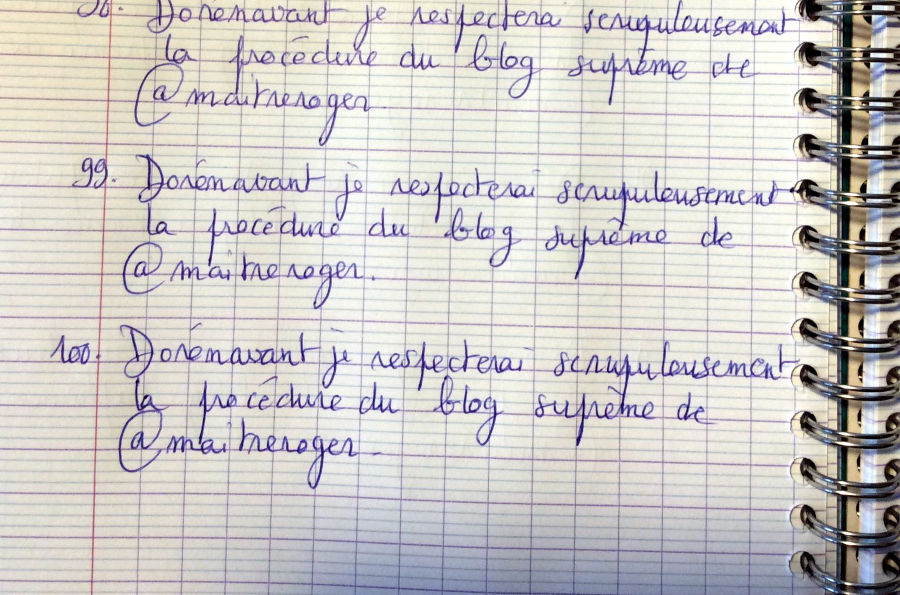 98. Dorénavant je respectera scrupuleusement
la procédure du blog suprême de
@maitreroger
99. Dorénavant je respecterai scrupuleusement
la procédure du blog suprême de
@maitreroger.
100. Dorénavant je respecterai scrupuleusement
la procédure du blog suprême de
@maitreroger.